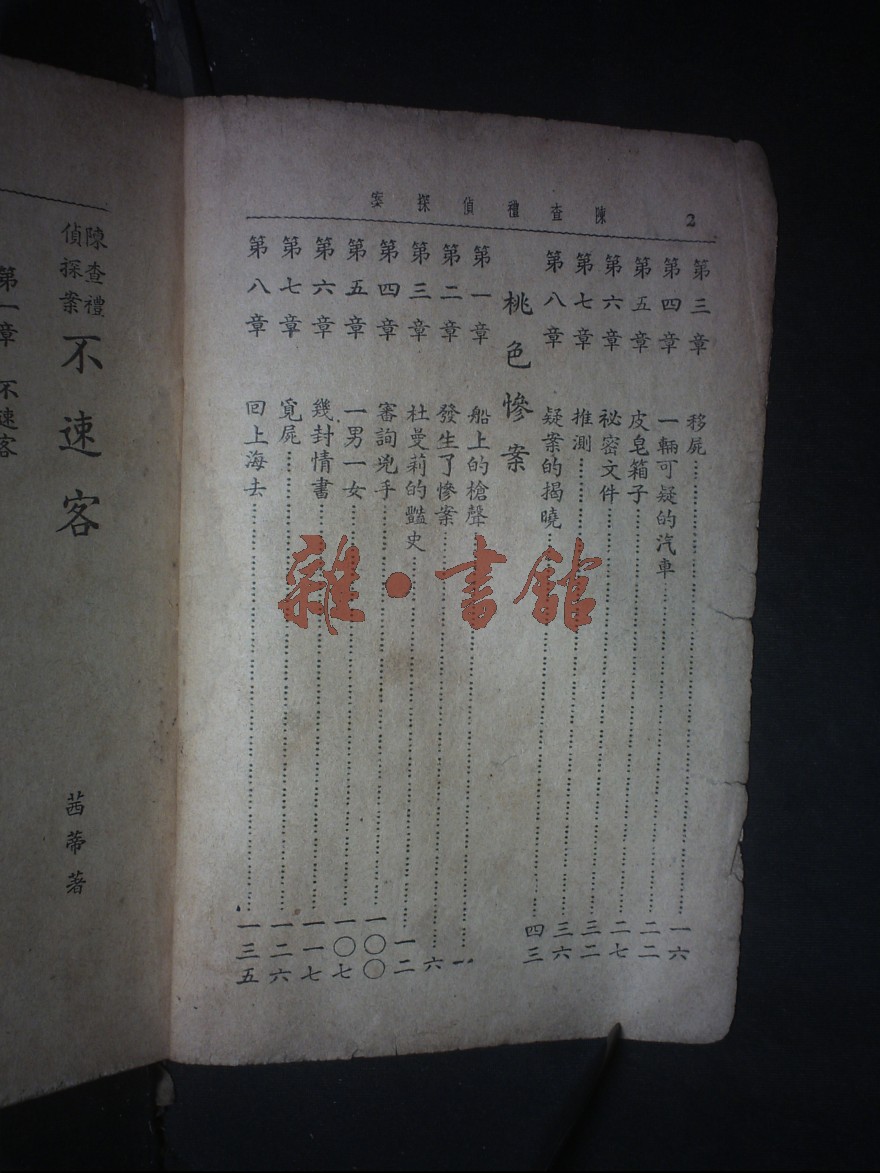 陳查禮偵探案 2
第三章 移屍……一六
第四章 一輛可疑的汽車……二二
第五章 皮皂箱子……二七
第六章 祕密文件……三二
第七章 推測……三六
第八章 疑案的揭曉……四三
桃色慘案
第一章 船上的槍聲……一
第二章 發生了慘案……六
第三章 杜曼莉的豔史……一二
第四章 審詢兇手……一〇〇
第五章 一男一女……一〇七
第六章 幾封情書……一一七
第七章 覓屍……一二六
第八章 回上海去……一三五
陳查禮
偵探案
不速客
茜蒂著
第一章 不速客
雜·書館